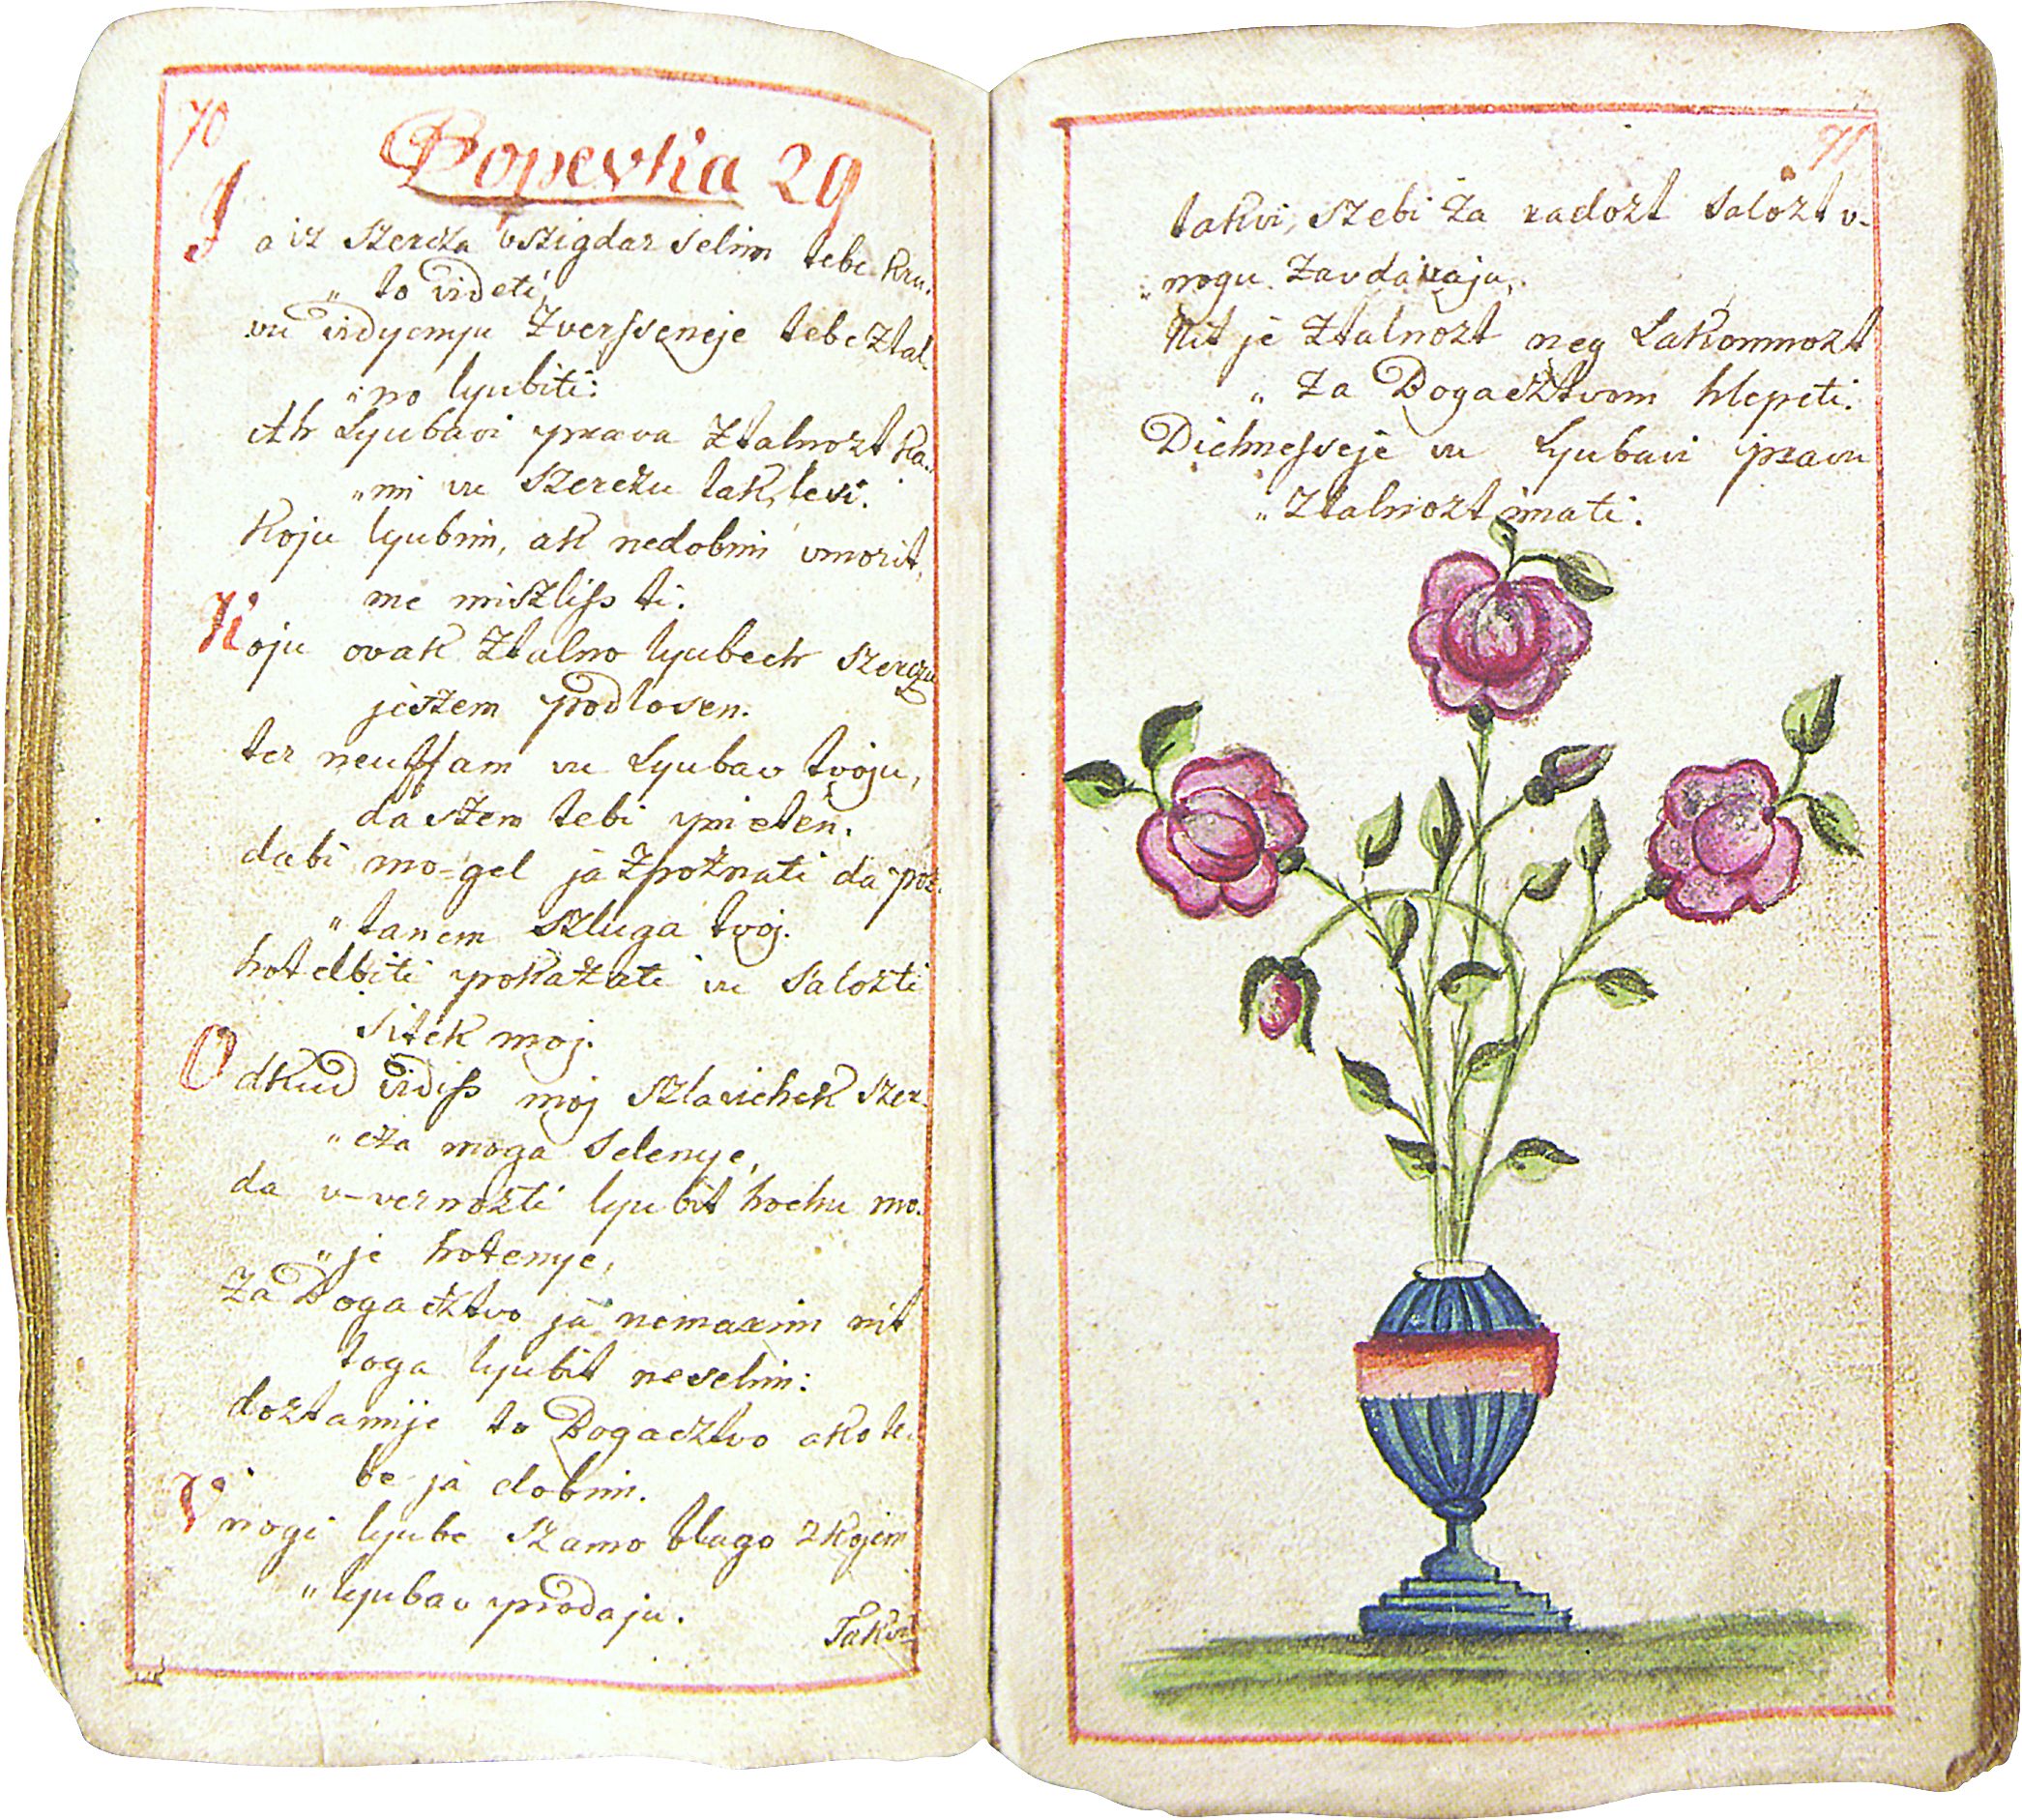 70
Popevka 29
Ja iz szercza vszigdar selim tebe kru-
„ to videti,
vu vidyenyu zversseneje tebe ztal-
„ no lyubiti:
Ah Lyubavi prava ztalnozt ka-
„ mi vu szerczu tak lesi.
Koju lyubim, ak nedobim vmorit,
me miszliss ti.
Koju ovak ztalno lyubech szerczu
jeszem podlosen.
ter neuffam vu Lyubav tvoju,
da szem tebi prieten.
dabi mo-gel ja zpoznati da poz-
„ tanem szluga tvoj.
hotelbiti pokazati vu salozti
sitek moj.
Odkud vidiss moj szlavichek szer-
„ cza moga selenye,
da v-vernozti lyubit hochu mo-
„ je hotenye,
Za Bogacztvo ja nemarim nit
toga lyubit neselim:
dozta mije to Bogacztvo ako te-
be ja dobim.
Vnogi lyube szamo blago zkojem
„ lyubav prodaju.
Takvi
71
takvi, szebi za radozt salozt v-
„ nogu zavdavaju,
Nit je ztalnozt neg Lakomnozt
„ za Bogacztvom hlepeti.
Dichnessveje vu Lyubavi pravu
„ ztalnozt imati.